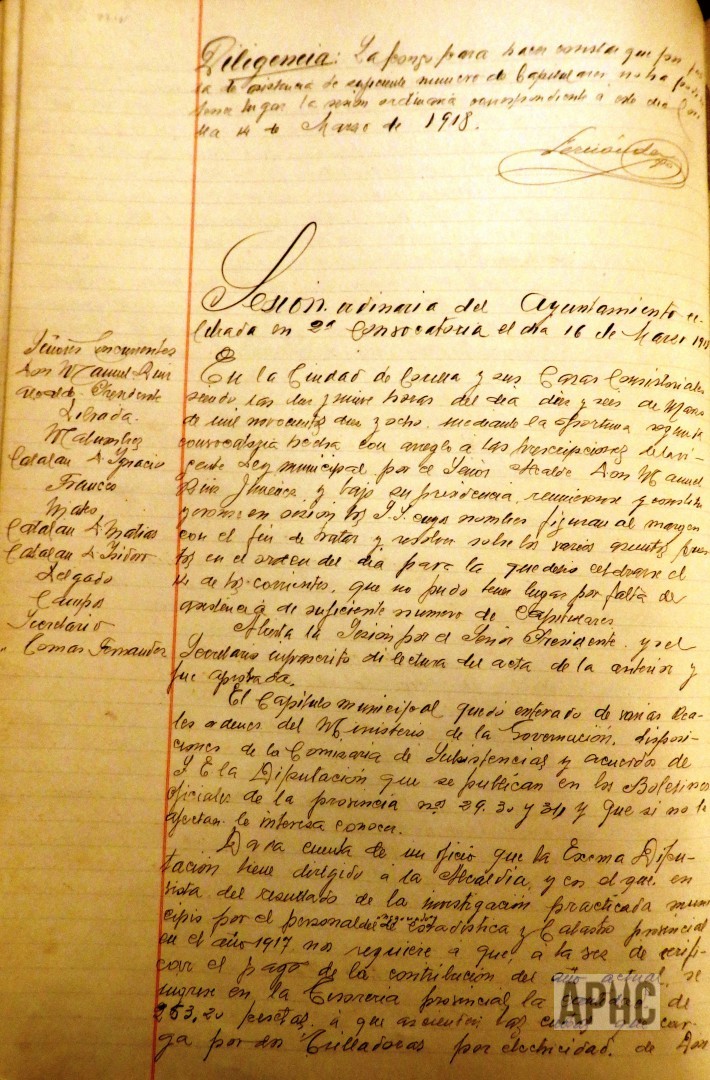 Diligencia: La pongo para hacer constar que por fal
ta de asistencia de suficiente numero de Capitulares no ha podido
tener lugar la sesion ordinaria correspondiente á este dia Core
lla 14 de Marzo de 1918.
Sesión ordinaria del Ayuntamiento ce-
lebrada en 2ª Convocatoria el dia 16 de Marzo 1918
Señores Concurrentes
Don Manuel Ruiz
Alcalde Presidente
Librada
Malumbres
Catalan D. Ignacio
Franco
Mateo
Catalan D. Matias
Catalan D. Isidoro
Delgado
Campos
Secretario
Comas Fernandez
En la Ciudad de Corella y sus Casas Consistoriales
siendo las diez y nueve horas del dia diez y seis de Marzo
de mil novecientos diez y ocho, mediante la oportuna segunda
convocatoria hecha con arreglo a las prescripciones de la vi-
gente Ley municipal por el Señor Alcalde Don Manuel
Ruiz Jimenez y bajo su presidencia, reunieronse y constitu
yeronse en sesion los S.S. cuyos nombres figuran al margen
con el fin de tratar y resolver sobre los varios asuntos pues
tos en el orden del dia para la que debio celebrarse el
14 de los corrientes, que no pudo tener lugar por falta de
asistencia de suficiente numero de Capitulares.
Abierta la Sesión por el Señor Presidente y yo el
Secretario infrascrito di lectura del acta de la anterior y
fue aprobada.
El Capitulo municipal quedó enterado de varias Rea-
les ordenes del Ministerio de la Governación, disposi-
ciones de la Comisaria de Subsistencias y acuerdos de
S. E. la Diputación que se publican en los Boletines
oficiales de la provincia nos 29. 30 y 31 y que si no le
afectan le interesa conocer.
Dada cuenta de un oficio que la Excma Dipu-
tación tiene dirigido a la Alcaldía, y en el que, en
vista del resultado de la investigación practicada muni
cipio por el personal del de Estadistica y Catastro provincial
en el año 1917 nos requiere a que, a la vez de verifi-
car el pago de la contribución del año actual, se
ingrese en la Tesoreria provincial la cantidad de
253,20 pesetas, á que ascienden las cuotas que car-
ga por dos Trilladoras por electricidad, de Don
APHC